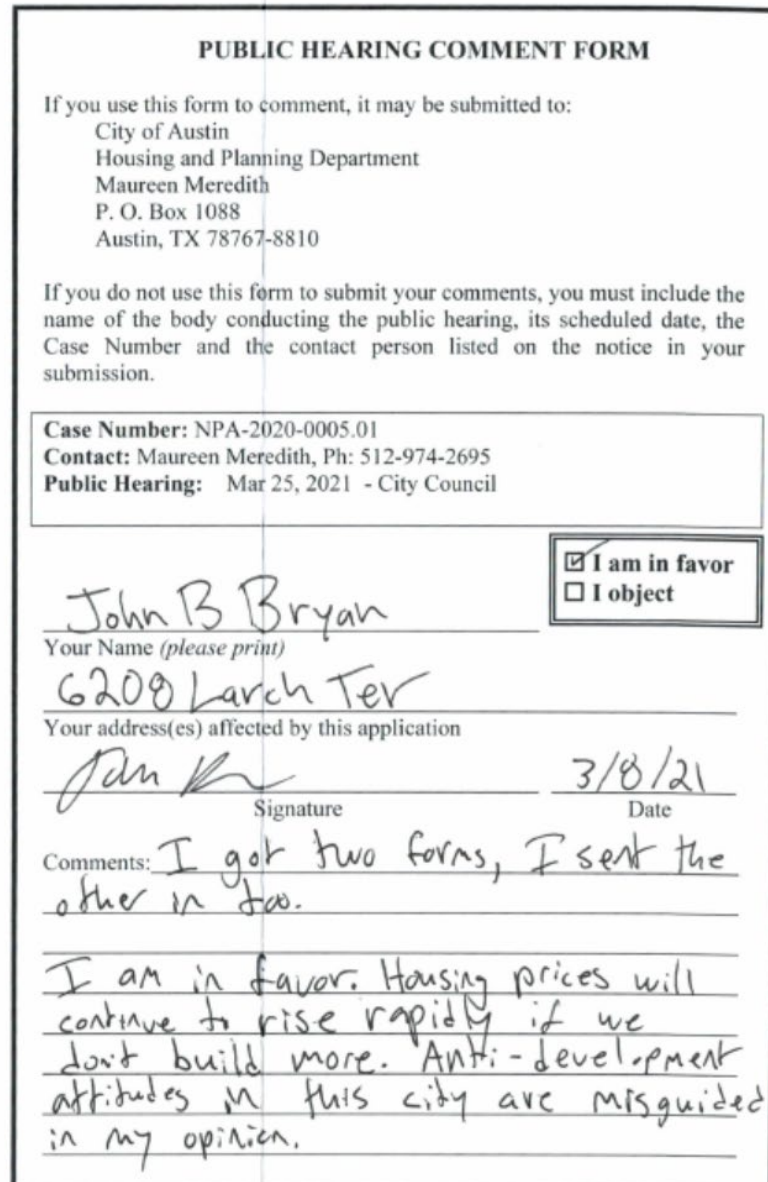 PUBLIC HEARING COMMENT FORM
If you use this form to comment, it may be submitted to:
City of Austin
Housing and Planning Department
Maureen Meredith
P. O. Box 1088
Austin, TX 78767-8810
If you do not use this form to submit your comments, you must include the
name of the body conducting the public hearing, its scheduled date, the
Case Number and the contact person listed on the notice in your
submission.
Case Number: NPA-2020-0005.01
Contact: Maureen Meredith, Ph: 512-974-2695
Public Hearing: Mar 25, 2021 - City Council
☑ I am in favor
☐ I object
John B Bryan
Your Name (please print)
6208 Larch Ter
Your address(es) affected by this application
3/8/21
Signature Date
Comments: I got two forms, I sent the
other in too.
I am in favor. Housing prices will
continue to rise rapidly if we
don't build more. Anti-development
attitudes in this city are misguided
in my opinion.